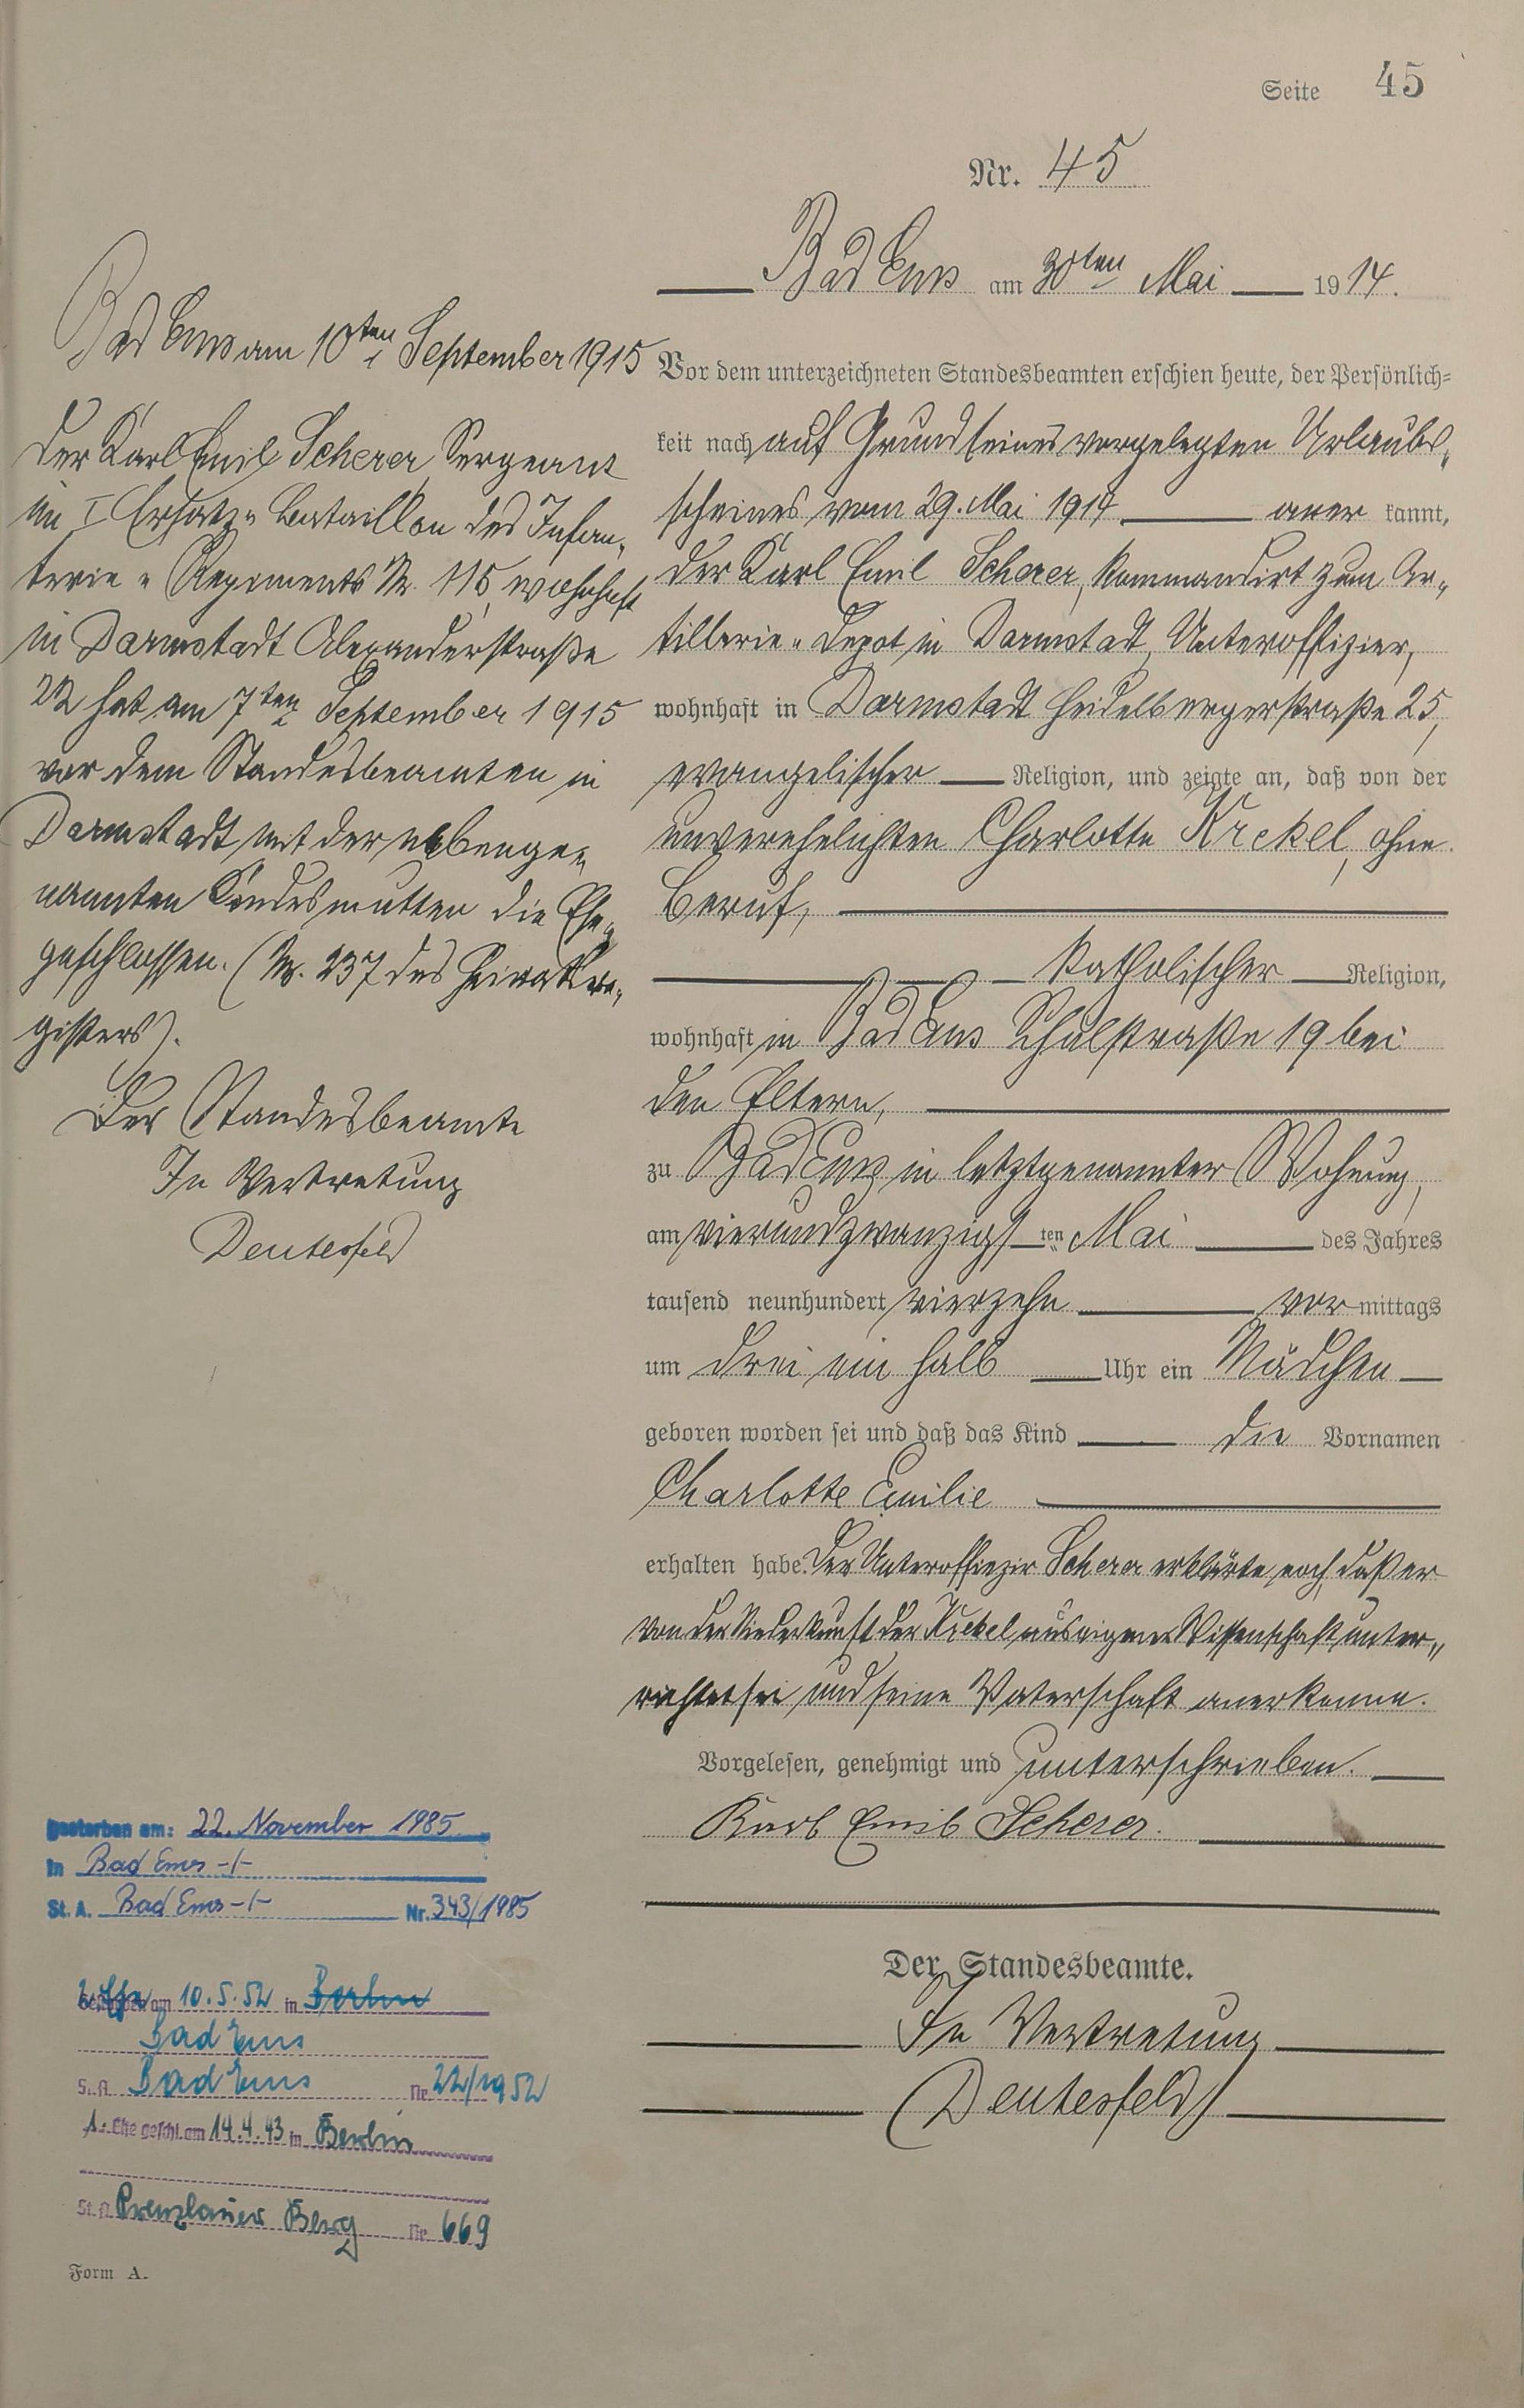 Seite 45
Nr. 45
Bad Ems am 30ten Mai 1914.
Vor dem unterzeichneten Standesbeamten erschien heute, der Persönlich=
keit nach auf Grund seines vorgelegten Urlaubs„
scheines vom 29. Mai 1914 aner kannt,
der Karl Emil Scherer, kommandirt zum Ar„
tillerie„Depot in Darmstadt, Unteroffizier,
wohnhaft in Darmstadt Heidelbergerstraße 25,
evangelischer Religion, und zeigte an, daß von der
unverehelichten Charlotte Krekel, ohne
Beruf,
katholischer Religion,
wohnhaft in Bad Ems Schulstraße 19 bei
den Eltern,
zu Bad Ems in letztgenannter Wohnung,
am vierundzwanzigsten Mai des Jahres
tausend neunhundert vierzehn vormittags
um drei ein halb Uhr ein Mädchen
geboren worden sei und daß das Kind die Vornamen
Charlotte Emilie
erhalten habe. Der Unteroffiezir Scherer erklärte noch, daß er
von der Niederkunft der Krekel aus eigener Wissenschaft unter„
richtet sei und seine Vaterschaft anerkenne.
Vorgelesen, genehmigt und unterschrieben.
Karl Emil Scherer.
Der Standesbeamte.
In Vertretung
Deutesfeld
Bad Ems am 10ten September 1915
Der Karl Emil Scherer, Sergeant
im I Ersatz„Bataillon des Infan„
terie„Regiments Nr. 115, wohnhaft
in Darmstadt Alexanderstraße
22 hat am 7ten September 1915
vor dem Standesbeamten in
Darmstadt mit der nebenge„
nannten Kindesmutter die Ehe
geschlossen. (Nr. 237 des Heiratsre„
gisters).
Der Standesbeamte
In Vertretung
Deutesfeld
gestorben am: 22. November 1985
in Bad Ems -/-
St. A. Bad Ems -/- Nr. 343/1985
2. Ehe am 10.5.52 in Berlin
Bad Ems
S. A. Bad Ems Nr. 22/1952
1. Ehe geschl. am 14.4.43 in Berlin
St. A. Prenzlauer Berg Nr. 669
Form A.